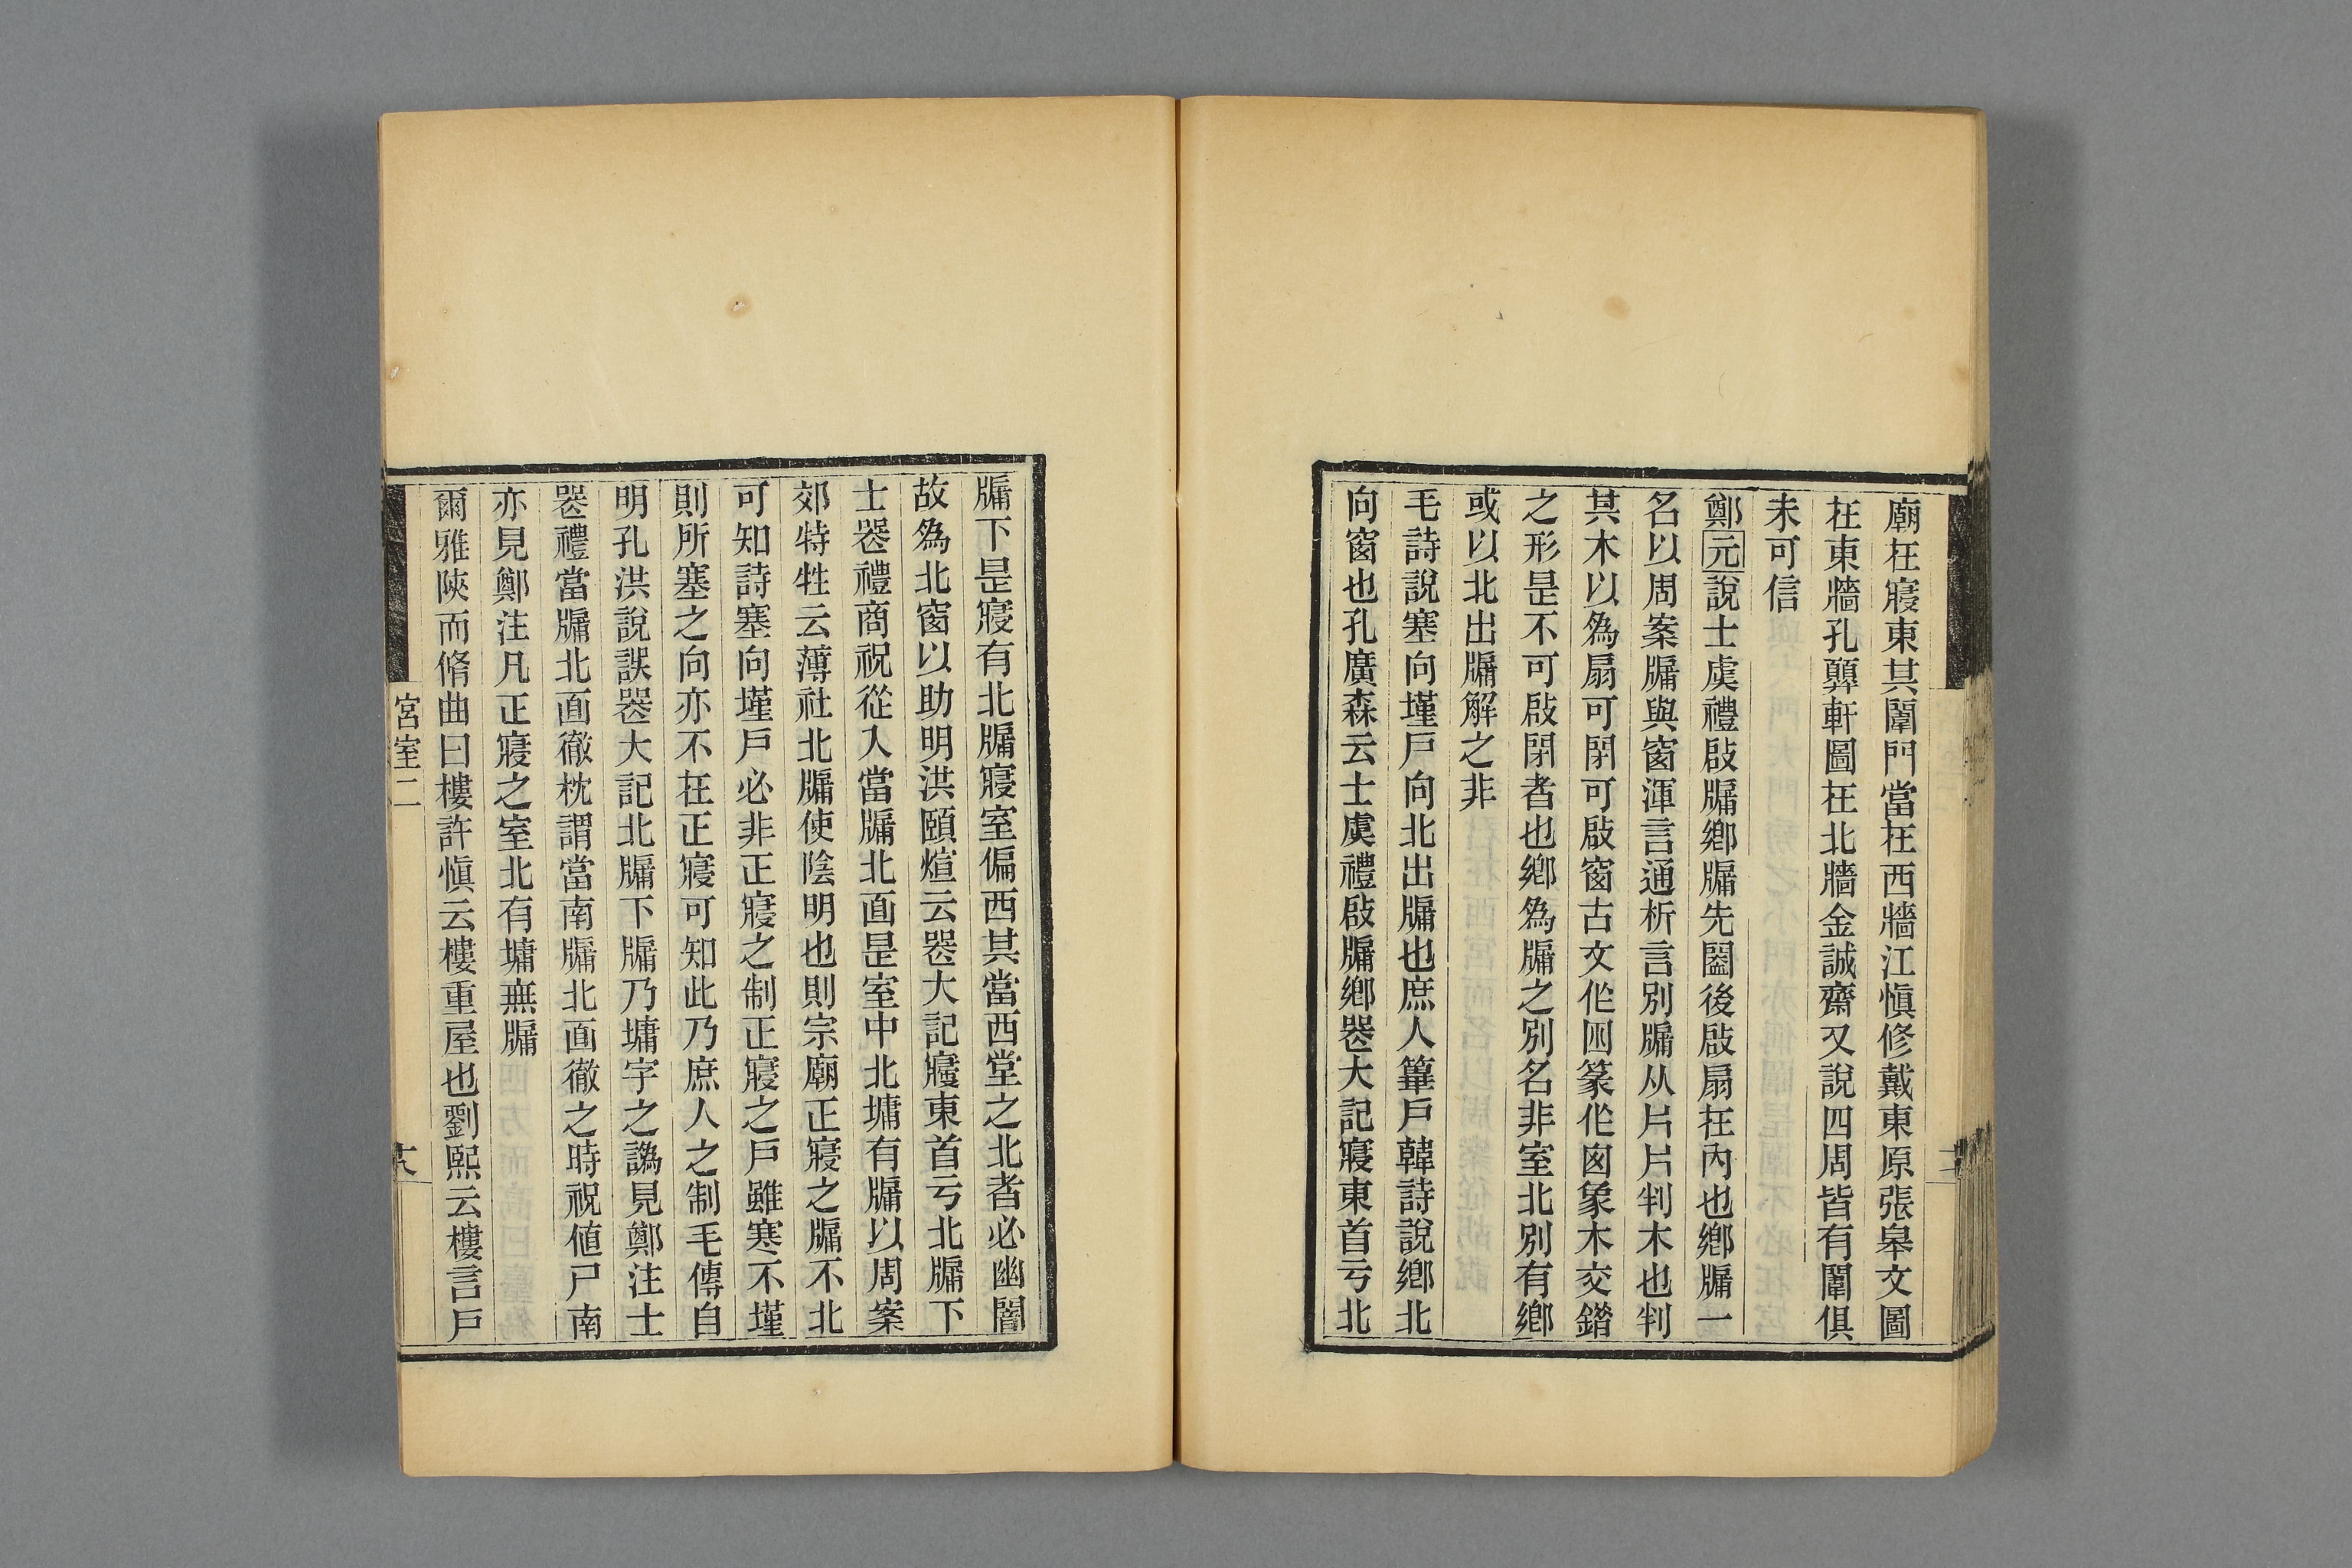 廟在寢東其闈門當在西牆江愼修戴東原張皋文圖
在東牆孔顨軒圖在北牆金誠齋又說四周皆有闈俱
未可信
鄭元說士虞禮啟牖鄉牖先闔後啟扇在內也鄉牖一
名以周案牖與窗渾言通析言別牖从片片判木也判
其木以爲扇可閉可啟窗古文作囱篆作囪象木交䥘
之形是不可啟閉者也鄉爲牖之別名非室北別有鄉
或以北出牖解之非
毛詩說塞向墐戶向北出牖也庶人篳戶韓詩說鄉北
向窗也孔廣森云士虞禮啟牖鄉喪大記寢東首于北
牖下是寢有北牖寢室偏西其當西堂之北者必幽闇
故爲北窗以助明洪頤煊云喪大記寢東首于北牖下
士喪禮商祝從入當牖北面是室中北墉有牖以周案
郊特牲云薄社北牖使陰明也則宗廟正寢之牖不北
可知詩塞向墐戶必非正寢之制正寢之戶雖寒不墐
則所塞之向亦不在正寢可知此乃庶人之制毛傳自
明孔洪說誤喪大記北牖下牖乃墉字之譌見鄭注士
喪禮當牖北面徹枕謂當南牖北面徹之時祝値尸南
亦見鄭注凡正寢之室北有墉無牖
爾雅陝而脩曲曰樓許愼云樓重屋也劉熙云樓言戶
宮室二
六